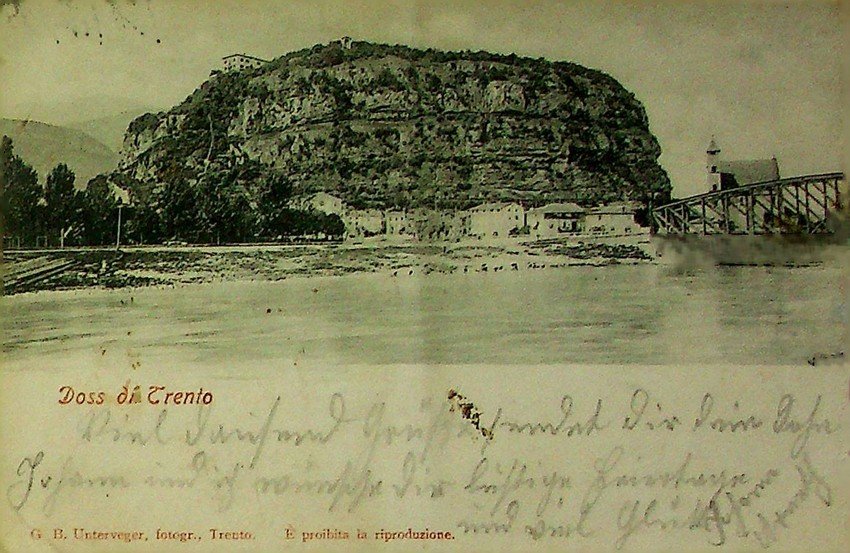 Doss di Trento
Viel dausend Grüße sendet dir dein Sohn
Johann und ich wünsche dir lustige Feiertage
und viel Glück
G. B. Unterveger, fotogr., Trento. È proibita la riproduzione.